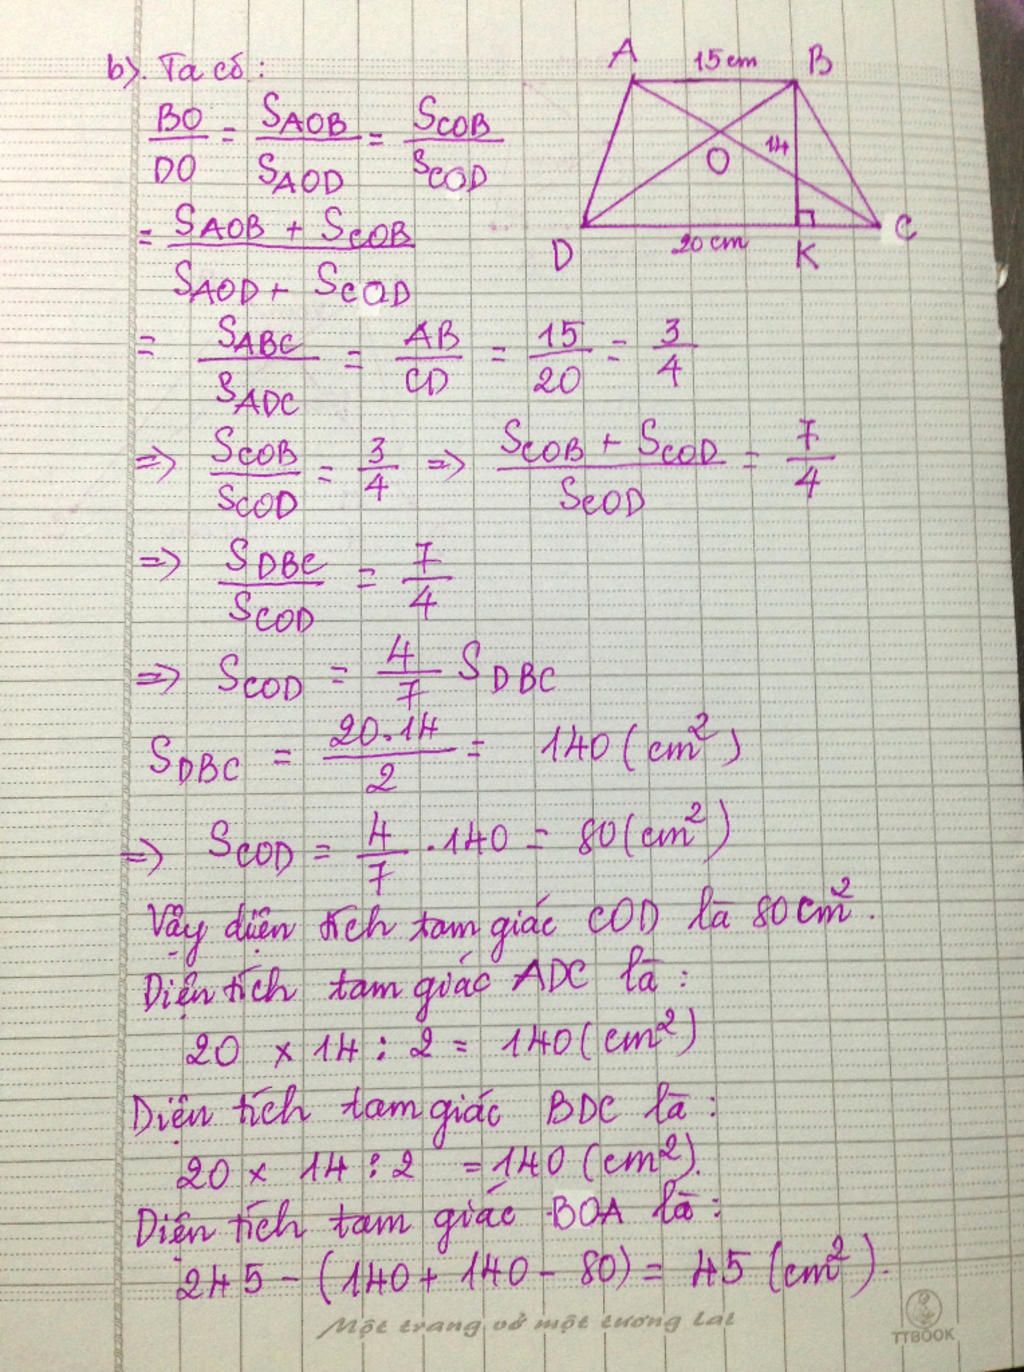 b). Ta có:
BO/DO = SAOB/SAOD = SCOB/SCOD
= SAOB + SCOB / SAOD + SCOD
= SABC/SADC = AB/CD = 15/20 = 3/4
=> SCOB/SCOD = 3/4 => SCOB + SCOD / SCOD = 7/4
=> SDBC/SCOD = 7/4
=> SCOD = 4/7 SDBC
SDBC = 20.14/2 = 140 (cm²)
=> SCOD = 4/7 .140 = 80 (cm²)
Vậy diện tích tam giác COD là 80 cm².
Diện tích tam giác ADC là:
20 x 14 : 2 = 140 (cm²)
Diện tích tam giác BDC là:
20 x 14 : 2 = 140 (cm²).
Diện tích tam giác BOA là:
245 - (140 + 140 - 80) = 45 (cm²).
A 15 cm B
O 14
D 20 cm K C
Một trang vở một tương lai
TTBOOK